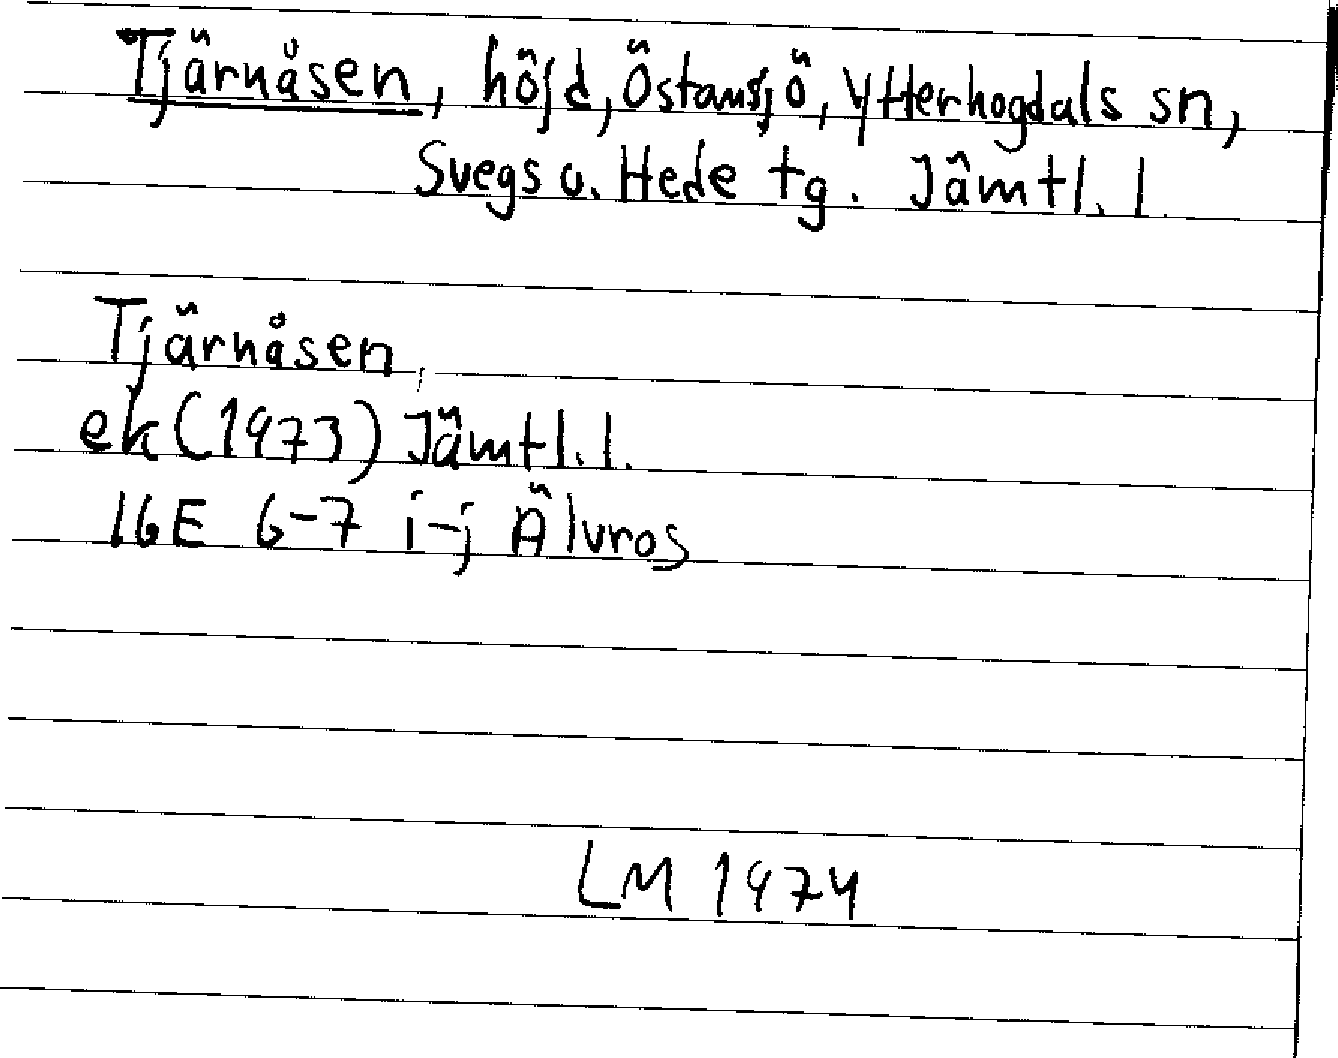 Tjärnåsen, höjd, Östansjö, Ytterhogdals sn,
Svegs o. Hede tg. Jämtl. l.
Tjärnåsen
ek (1973) Jämtl. l.
16E 6-7 i-j Älvros
LM 1974